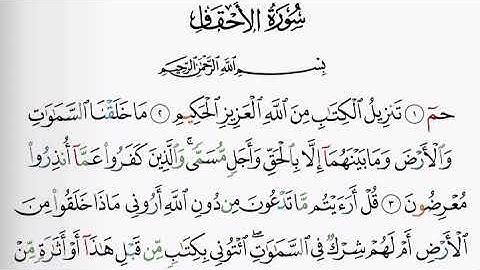 سُورَةُ الأَحْقَافِ
بِسْمِ اللَّهِ الرَّحْمَٰنِ الرَّحِيمِ
حمٓ ۝١ تَنزِيلُ الْكِتَابِ مِنَ اللَّهِ الْعَزِيزِ الْحَكِيمِ ۝٢ مَا خَلَقْنَا السَّمَاوَاتِ
وَالْأَرْضَ وَمَا بَيْنَهُمَا إِلَّا بِالْحَقِّ وَأَجَلٍ مُّسَمًّى ۚ وَالَّذِينَ كَفَرُوا عَمَّا أُنذِرُوا
مُعْرِضُونَ ۝٣ قُلْ أَرَأَيْتُم مَّا تَدْعُونَ مِن دُونِ اللَّهِ أَرُونِي مَاذَا خَلَقُوا مِنَ
الْأَرْضِ أَمْ لَهُمْ شِرْكٌ فِي السَّمَاوَاتِ ۖ ائْتُونِي بِكِتَابٍ مِّن قَبْلِ هَٰذَا أَوْ أَثَارَةٍ مِّنْ